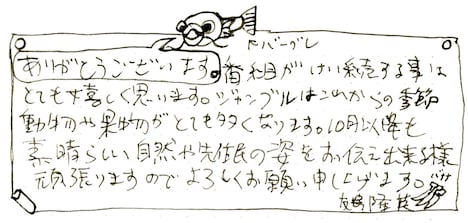 ドバーグレ
ありがとうございます。番組がけい続する事は
とても嬉しく思います。ジャングルはこれからの季節
動物や果物がとても多くなります。10月以降も
素晴らしい自然や先住民の姿をお伝え出来る様
頑張りますのでよろしくお願い申し上げます。